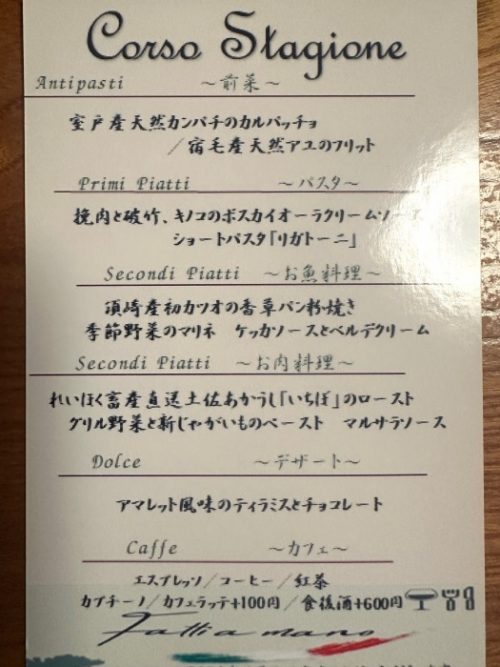 Corso Stagione
Antipasti ～前菜～
室戸産天然カンパチのカルパッチョ
／宿毛産天然アユのフリット
Primi Piatti ～パスタ～
挽肉と破竹、キノコのボスカイオーラクリームソース
ショートパスタ「リガトーニ」
Secondi Piatti ～お魚料理～
須崎産初カツオの香草パン粉焼き
季節野菜のマリネ ケッカソースとベルデクリーム
Secondi Piatti ～お肉料理～
れいほく畜産直送土佐あかうし「いちぼ」のロースト
グリル野菜と新じゃがいものペースト マルサラソース
Dolce ～デザート～
アマレット風味のティラミスとチョコレート
Caffe ～カフェ～
エスプレッソ／コーヒー／紅茶
カプチーノ／カフェラッテ+100円／食後酒+600円
Fatti a mano